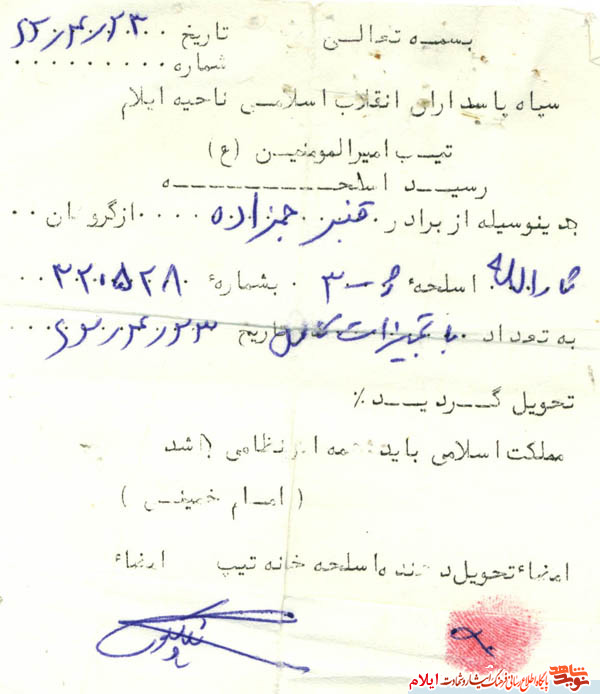 بسمه تعالی تاریخ ۶۲/۴/۲۳
شماره
سپاه پاسداران انقلاب اسلامی ناحیه ایلام
تیپ امیرالمومنین (ع)
رسید اسلحه
بدینوسیله از برادر قنبر حمزاده از گروهان
ثارالله اسلحهٔ ژ-۳ بشمارهٔ ۳۲۰۵۲۸
به تعداد با تجهیزات کامل تاریخ ۶۲/۴/۲۳
تحویل گردید٪
مملکت اسلامی باید همه اش نظامی باشد
(امام خمینی)
امضاء تحویل دهنده اسلحه خانه تیپ امضاء
نوید شاهد پایگاه اطلاع رسانی فرهنگ ایثار و شهادت ایلام